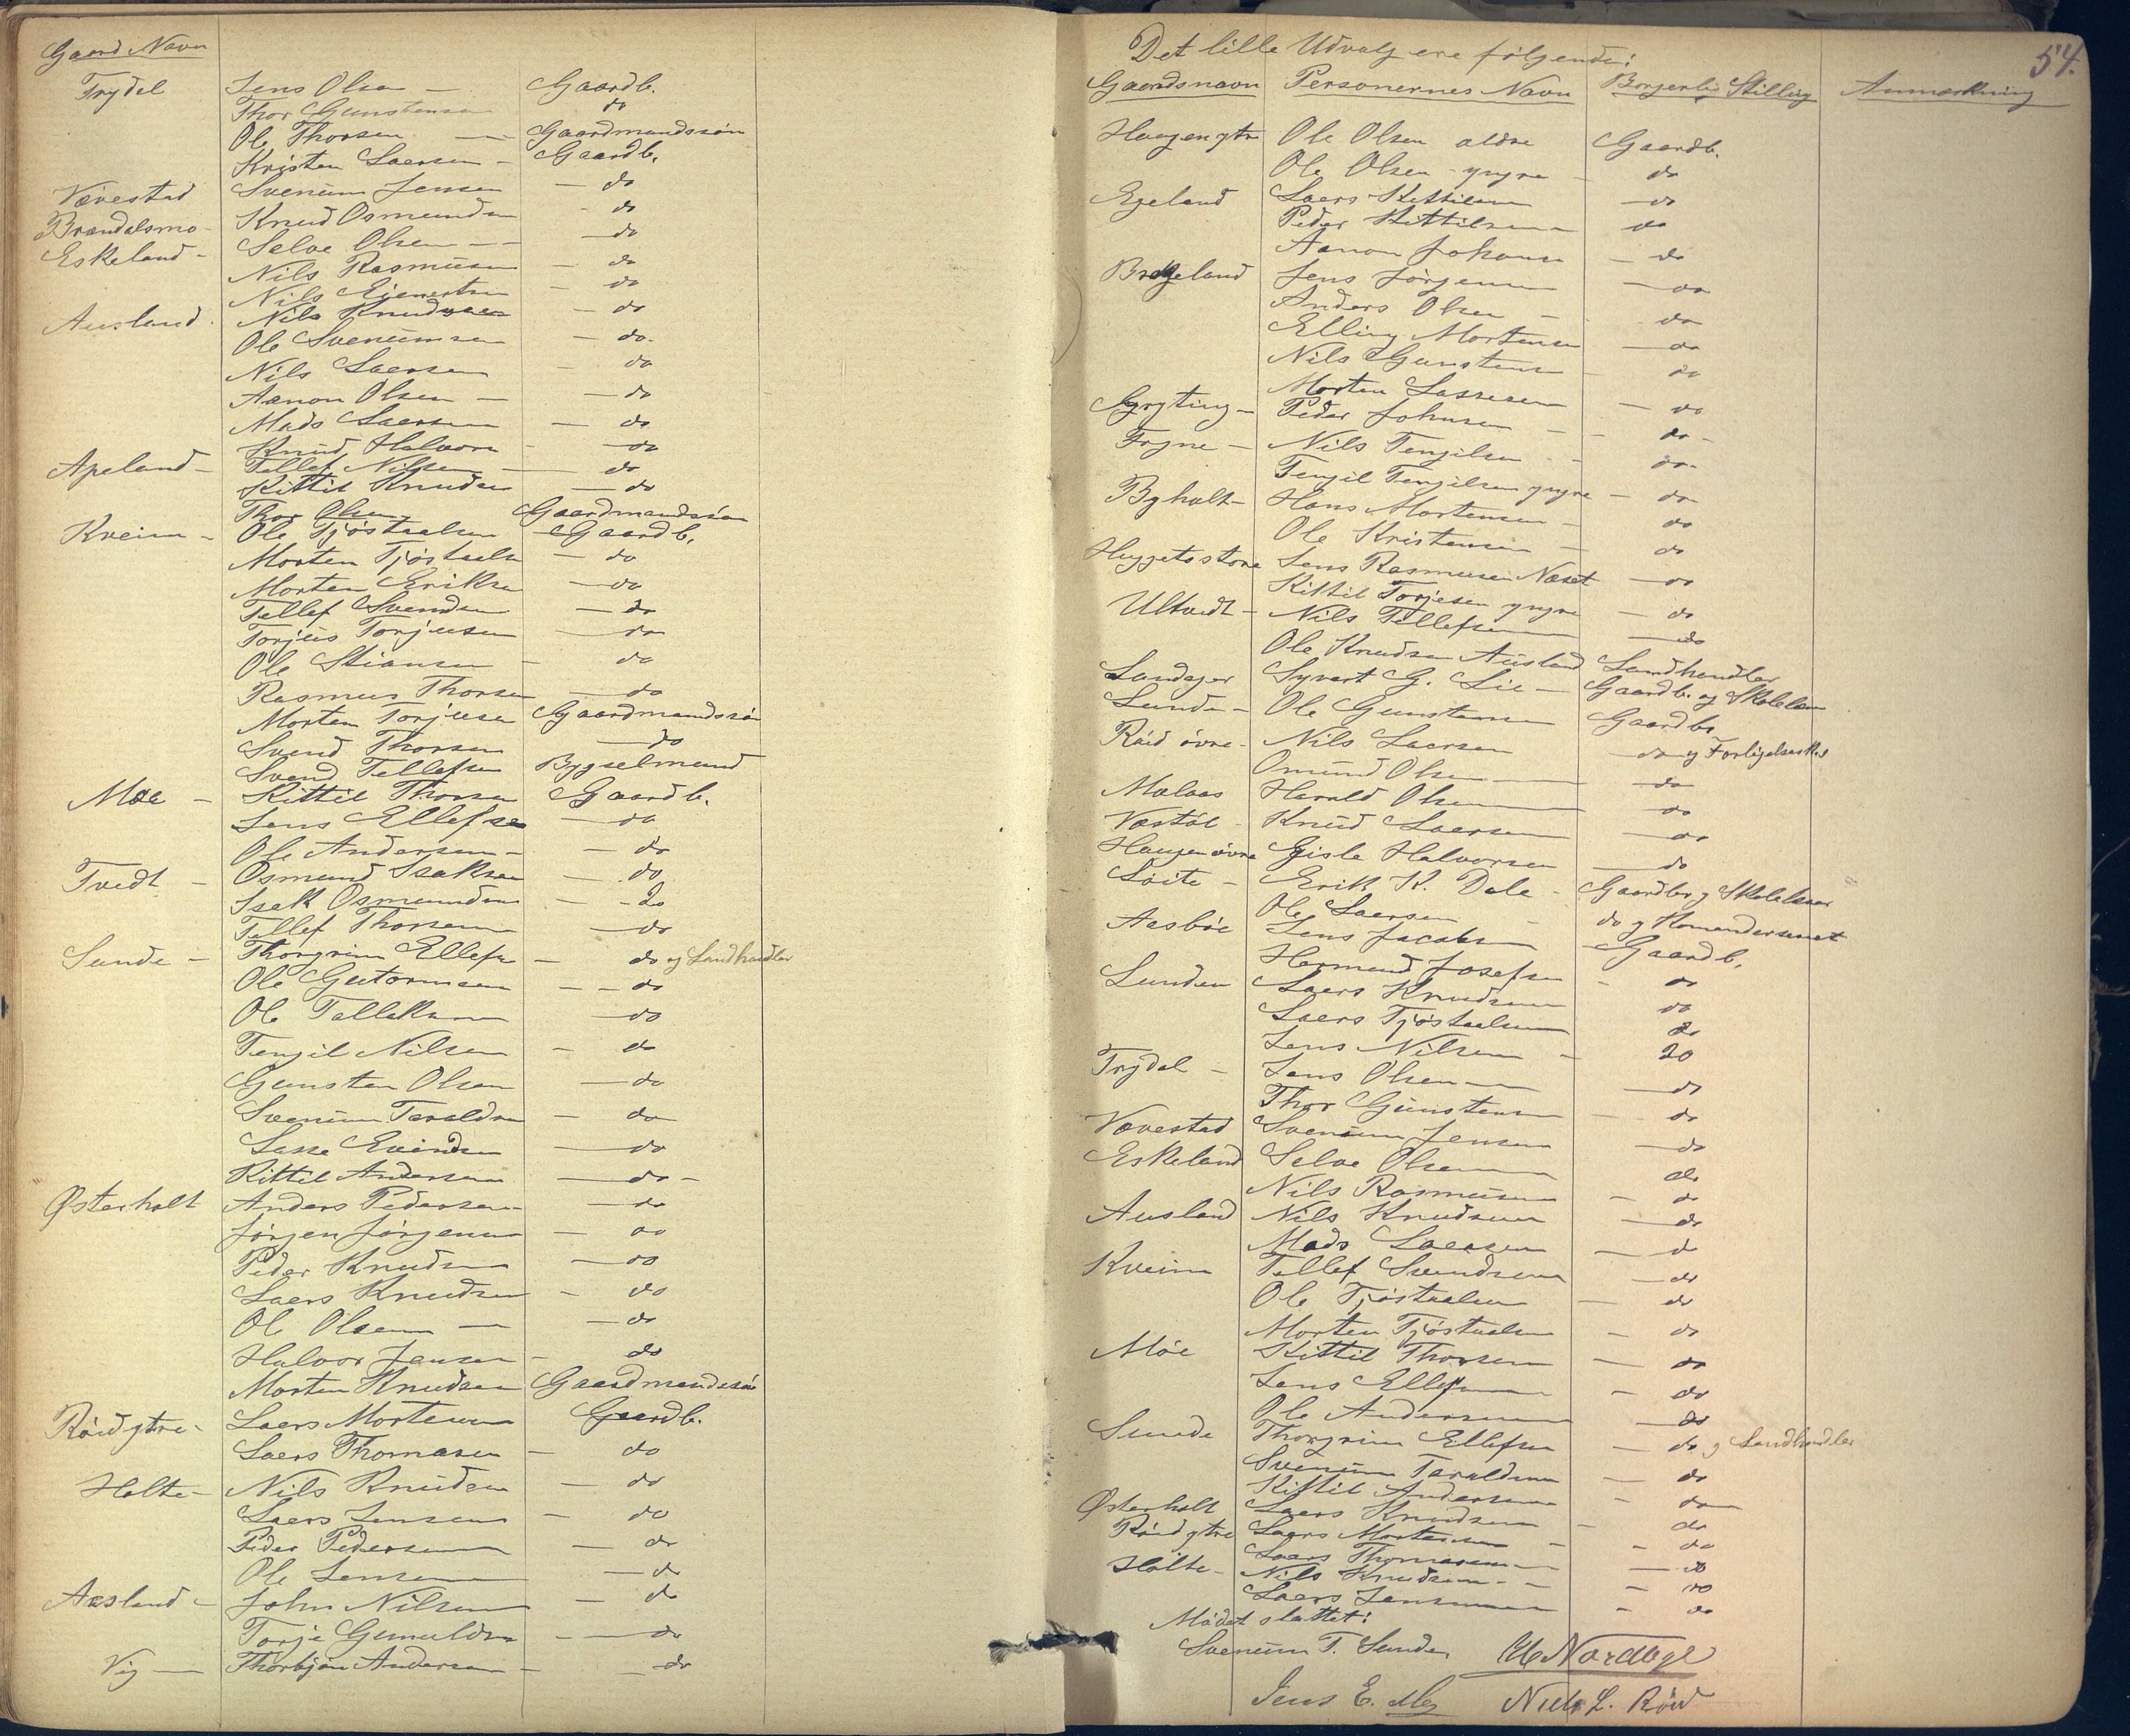 Gaard Navn
Trydal Jens Olsen — Gaardb.
Thor Gunstensen do
Ole Thorsen — Gaardmandssøn
Kristen Laersen — Gaardb.
Vævestad Svenum Jensen — do
Brandalsmo - Knud Osmundsen - do
Eskeland - Selve Olsen — — do
Nils Rasmusen — do
Nils — do
Ausland. Nils Knudsen — do
Ole Svenumsen — do.
Nils Laersen — do
Aanon Olsen — — do
Mads Laersen — do
Knud Halvorsn — do
Apeland — Tellef Nilsen — do
Kittil Knudsen — do
Thor Olsen Gaardmandssøn
Kveim — Ole Tjøstaalsen — Gaardb.
Morten Tjøstaalsn — do
Morten Eriksen — do
Tellef Svendsen — do
Torjus Torjusen — do
Ole Stiansen — do
Rasmus Thorsen — do
Morten Torjusen Gaardmandssøn
Svend Thorsen — do
Svend Tellefsen Bygselmand
Moe — Kittil Thorsen Gaardb.
Jens Ellefsen — do
Ole Andersen — — do
Tvedt — Osmund Isaksen — do
Isak Osmundsen — do
Tellef Thorsen — do
Sunde — Thorgrim Ellefsn — do og Landhandler
Ole Gutormsen — — do
Ole Tallaksen — do
Tengil Nilsen — do
Gunsten Olsen — do
Svenum Taraldsen — do
Lasse Evindsen — do
Kittil Andersen — do -
Østerholt Anders Pedersen — do
Jørgen Jørgensen — do
Peder Knudsen — do
Laers Knudsen — do
Ole Olsen — — do
Halvor Jensen — do
Morten Knudsen Gaardmandssøn
Røid ytre - Laers Mortensen Gaardb.
Laers Thomasen — do
Holte — Nils Knudsen — do
Laers Jensen — do
Peder Pedersen — do
Ole Jensen — do
Aasland — John Nilsen — do
Torje Gunuldsen — do
Vig — Thorbjøn Andersen — do
54.
Det lille Udvalg ere følgende:
Gaardsnavn Personernes Navn Borgerlig Stilling Anmærkning
Haugen ytre Ole Olsen ældre Gaardb.
Ole Olsen yngre — do
Egeland Laers Kittilsen — do
Peder Kittilsen do
Aanon Johansen — do
Brekeland Jens Jørgensen — do
Anders Olsen — do
Elling Mortensen — do
Nils Gunstensen — do
Morten Lassesen — do
Gryting — Peder Johnsen — do -
Frgne — Nils Tengilsen — do.
Tengil Tengilsen yngre — do
Byholt — Hans Mortensen — do
Ole Kristensen — do
Jens Rasmusen Næset — do
Kittil Torjesen yngre — do
Ultvedt — Nils Tellefsen — do
Ole Knudsen Ausland Landhandler
Landager Syvert G. Lie — Gaardb. og Skolelærer
Lunde — Ole Gunstensen Gaardbr
Røid øvre - Nils Laersen — do og
Omund Olsen — do
Molaas Harald Olsen — do
Vastøl Knud Laersen — do
Haugen øvre Gisle Halvorsen — do
Løite — Erik K. Dale — Gaardbr og Skolelærer
Ole Laersen — do og
Aasbøe Jens Jacobsen — Gaardb.
Hermund Josefsen - do
Lunden Laers Knudsen do
Laers Tjøstaalsen do
Jens Nilsen — do
Trydal — Jens Olsen — do
Thor Gunstensen — do
Vævestad Svenum Jensen — do
Eskeland Selve Olsen do
Nils Rasmusen — do
Ausland Nils Knudsen — do
Mads Laersen — do
Kveim Tellef Svendsen — do
Ole Tjøstaalsen — do
Morten Tjøstaalsen — do
Møe Kittil Thorsen — do
Jens Ellefsen — do
Ole Andersen — do
Sunde Thorgrim Ellefsen — do og Landhandler
Svenum Taraldsen — do
Kittil Andersen — do
Østerholt Laers Knudsen — do
Røid ytre Laers Mortensen — do
Laers Thomasen — do
Holte — Nils Knudsen — do
Laers Jensen — do
Mødet sluttet:
Svenum T. Sunde, Nordbye
Jens E. Niels L. Røid